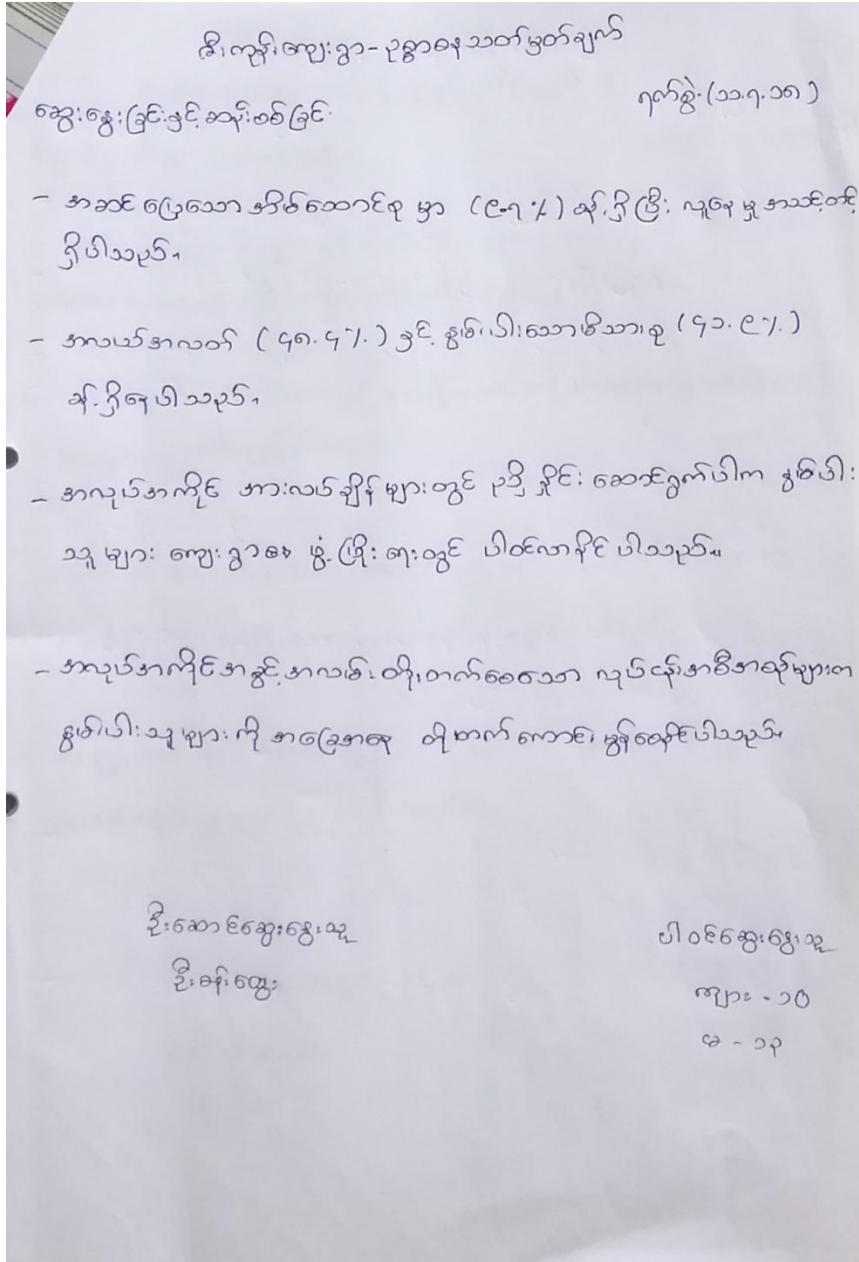 ဇီးကုန်းကျေးရွာ - ဥစ္စာဓနသတ်မှတ်ချက်
ရက်စွဲ. (၁၁.၇.၁၈)
ဆွေးနွေးခြင်းနှင့် ဆန်းစစ်ခြင်း
- အဆင်ပြေသော အိမ်ထောင်စု မှာ (၉.၇ %) ခန့်ရှိပြီး လူနေမှုအသင့်တင့်
ရှိပါသည်။
- အလယ်အလတ် (၄၈.၄ %) နှင့် နွမ်းပါးသောမိသားစု (၄၁.၉ %)
ခန့်ရှိနေပါသည်။
- အလုပ်အကိုင် အားလပ်ချိန်များတွင် ညှိနှိုင်း ဆောင်ရွက်ပါက နွမ်းပါး
သူများ ကျေးရွာ ဖွံ့ဖြိုးရေးတွင် ပါဝင်လာနိုင်ပါသည်။
- အလုပ်အကိုင်အခွင့်အလမ်း တိုးတက်စေသော လုပ်ငန်းအစီအစဉ်များက
နွမ်းပါးသူများကို အခြေအနေ တိုးတက်ကောင်းမွန်စေနိုင်ပါသည်။
ဦးဆောင်ဆွေးနွေးသူ
ဦးခန်းထွေး
ပါဝင်ဆွေးနွေးသူ
ကျား - ၁၀
မ - ၁၃